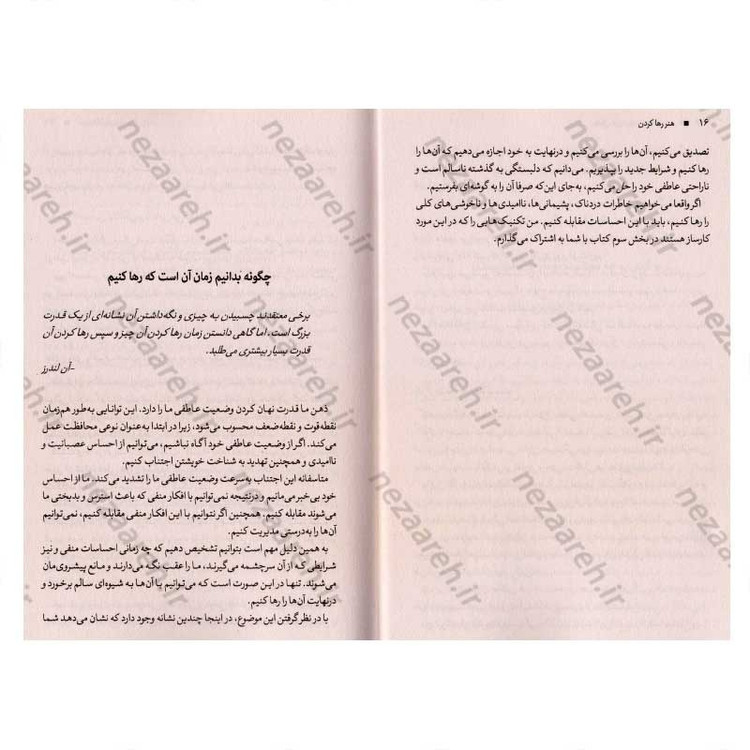 ۱۶ ■ هنر رها کردن
تصدیق می‌کنیم، آن‌ها را بررسی می‌کنیم و درنهایت به خود اجازه می‌دهیم که آن‌ها را
رها کنیم و شرایط جدید را بپذیریم. می‌دانیم که دلبستگی به گذشته ناسالم است و
ناراحتی عاطفی خود را حل می‌کنیم، به‌جای این‌که صرفا آن را به گوشه‌ای بفرستیم.
اگر واقعا می‌خواهیم خاطرات دردناک، پشیمانی‌ها، ناامیدی‌ها و ناخوشی‌های کلی
را رها کنیم، باید با این احساسات مقابله کنیم. من تکنیک‌هایی را که در این مورد
کارساز هستند در بخش سوم کتاب با شما به اشتراک می‌گذارم.
چگونه بدانیم زمان آن است که رها کنیم
برخی معتقدند چسبیدن به چیزی و نگه‌داشتن آن نشانه‌ای از یک قدرت
بزرگ است. اما گاهی دانستن زمان رها کردن آن چیز و سپس رها کردن آن
قدرت بسیار بیشتری می‌طلبد.
-آن لندرز
ذهن ما قدرت نهان کردن وضعیت عاطفی ما را دارد. این توانایی به‌طور هم‌زمان
نقطه‌قوت و نقطه‌ضعف محسوب می‌شود، زیرا در ابتدا به‌عنوان نوعی محافظت عمل
می‌کند. اگر از وضعیت عاطفی خود آگاه نباشیم، می‌توانیم از احساس عصبانیت و
ناامیدی و همچنین تهدید به شناخت خویشتن اجتناب کنیم.
متاسفانه این اجتناب به‌سرعت وضعیت عاطفی ما را تشدید می‌کند. ما از احساس
خود بی‌خبر می‌مانیم و درنتیجه نمی‌توانیم با افکار منفی که باعث استرس و بدبختی ما
می‌شوند مقابله کنیم. همچنین اگر نتوانیم با این افکار منفی مقابله کنیم، نمی‌توانیم
آن‌ها را به‌درستی مدیریت کنیم.
به همین دلیل مهم است بتوانیم تشخیص دهیم که چه زمانی احساسات منفی و نیز
شرایطی که از آن سرچشمه می‌گیرند، ما را عقب نگه می‌دارند و مانع پیشروی‌مان
می‌شوند. تنها در این صورت است که می‌توانیم با آن‌ها به شیوه‌ای سالم برخورد و
درنهایت آن‌ها را رها کنیم.
با در نظر گرفتن این موضوع، در اینجا چندین نشانه وجود دارد که نشان می‌دهد شما
nezaareh.ir
nezaareh.ir
nezaareh.ir
nezaareh.ir
nezaareh.ir
nezaareh.ir
nezaareh.ir
nezaareh.ir
nezaareh.ir